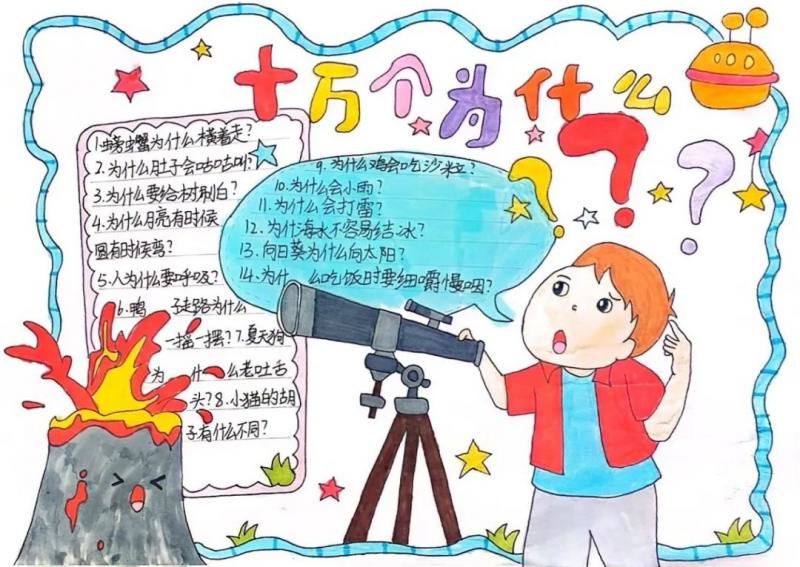 十万个为什么
1.螃蟹为什么横着走?
2.为什么肚子会咕咕叫?
3.为什么要给树刷白?
4.为什么月亮有时候
圆有时候弯?
5.人为什么要呼吸?
6.鸭子走路为什么
一摇一摆?7.夏天狗
为什么老吐舌
头?8.小猫的胡
子有什么不同?
9.为什么鸡会吃沙粒?
10.为什么会小雨?
11.为什么会打雷?
12.为什海水不容易结冰?
13.向日葵为什么向太阳?
14.为什么吃饭时要细嚼慢咽?